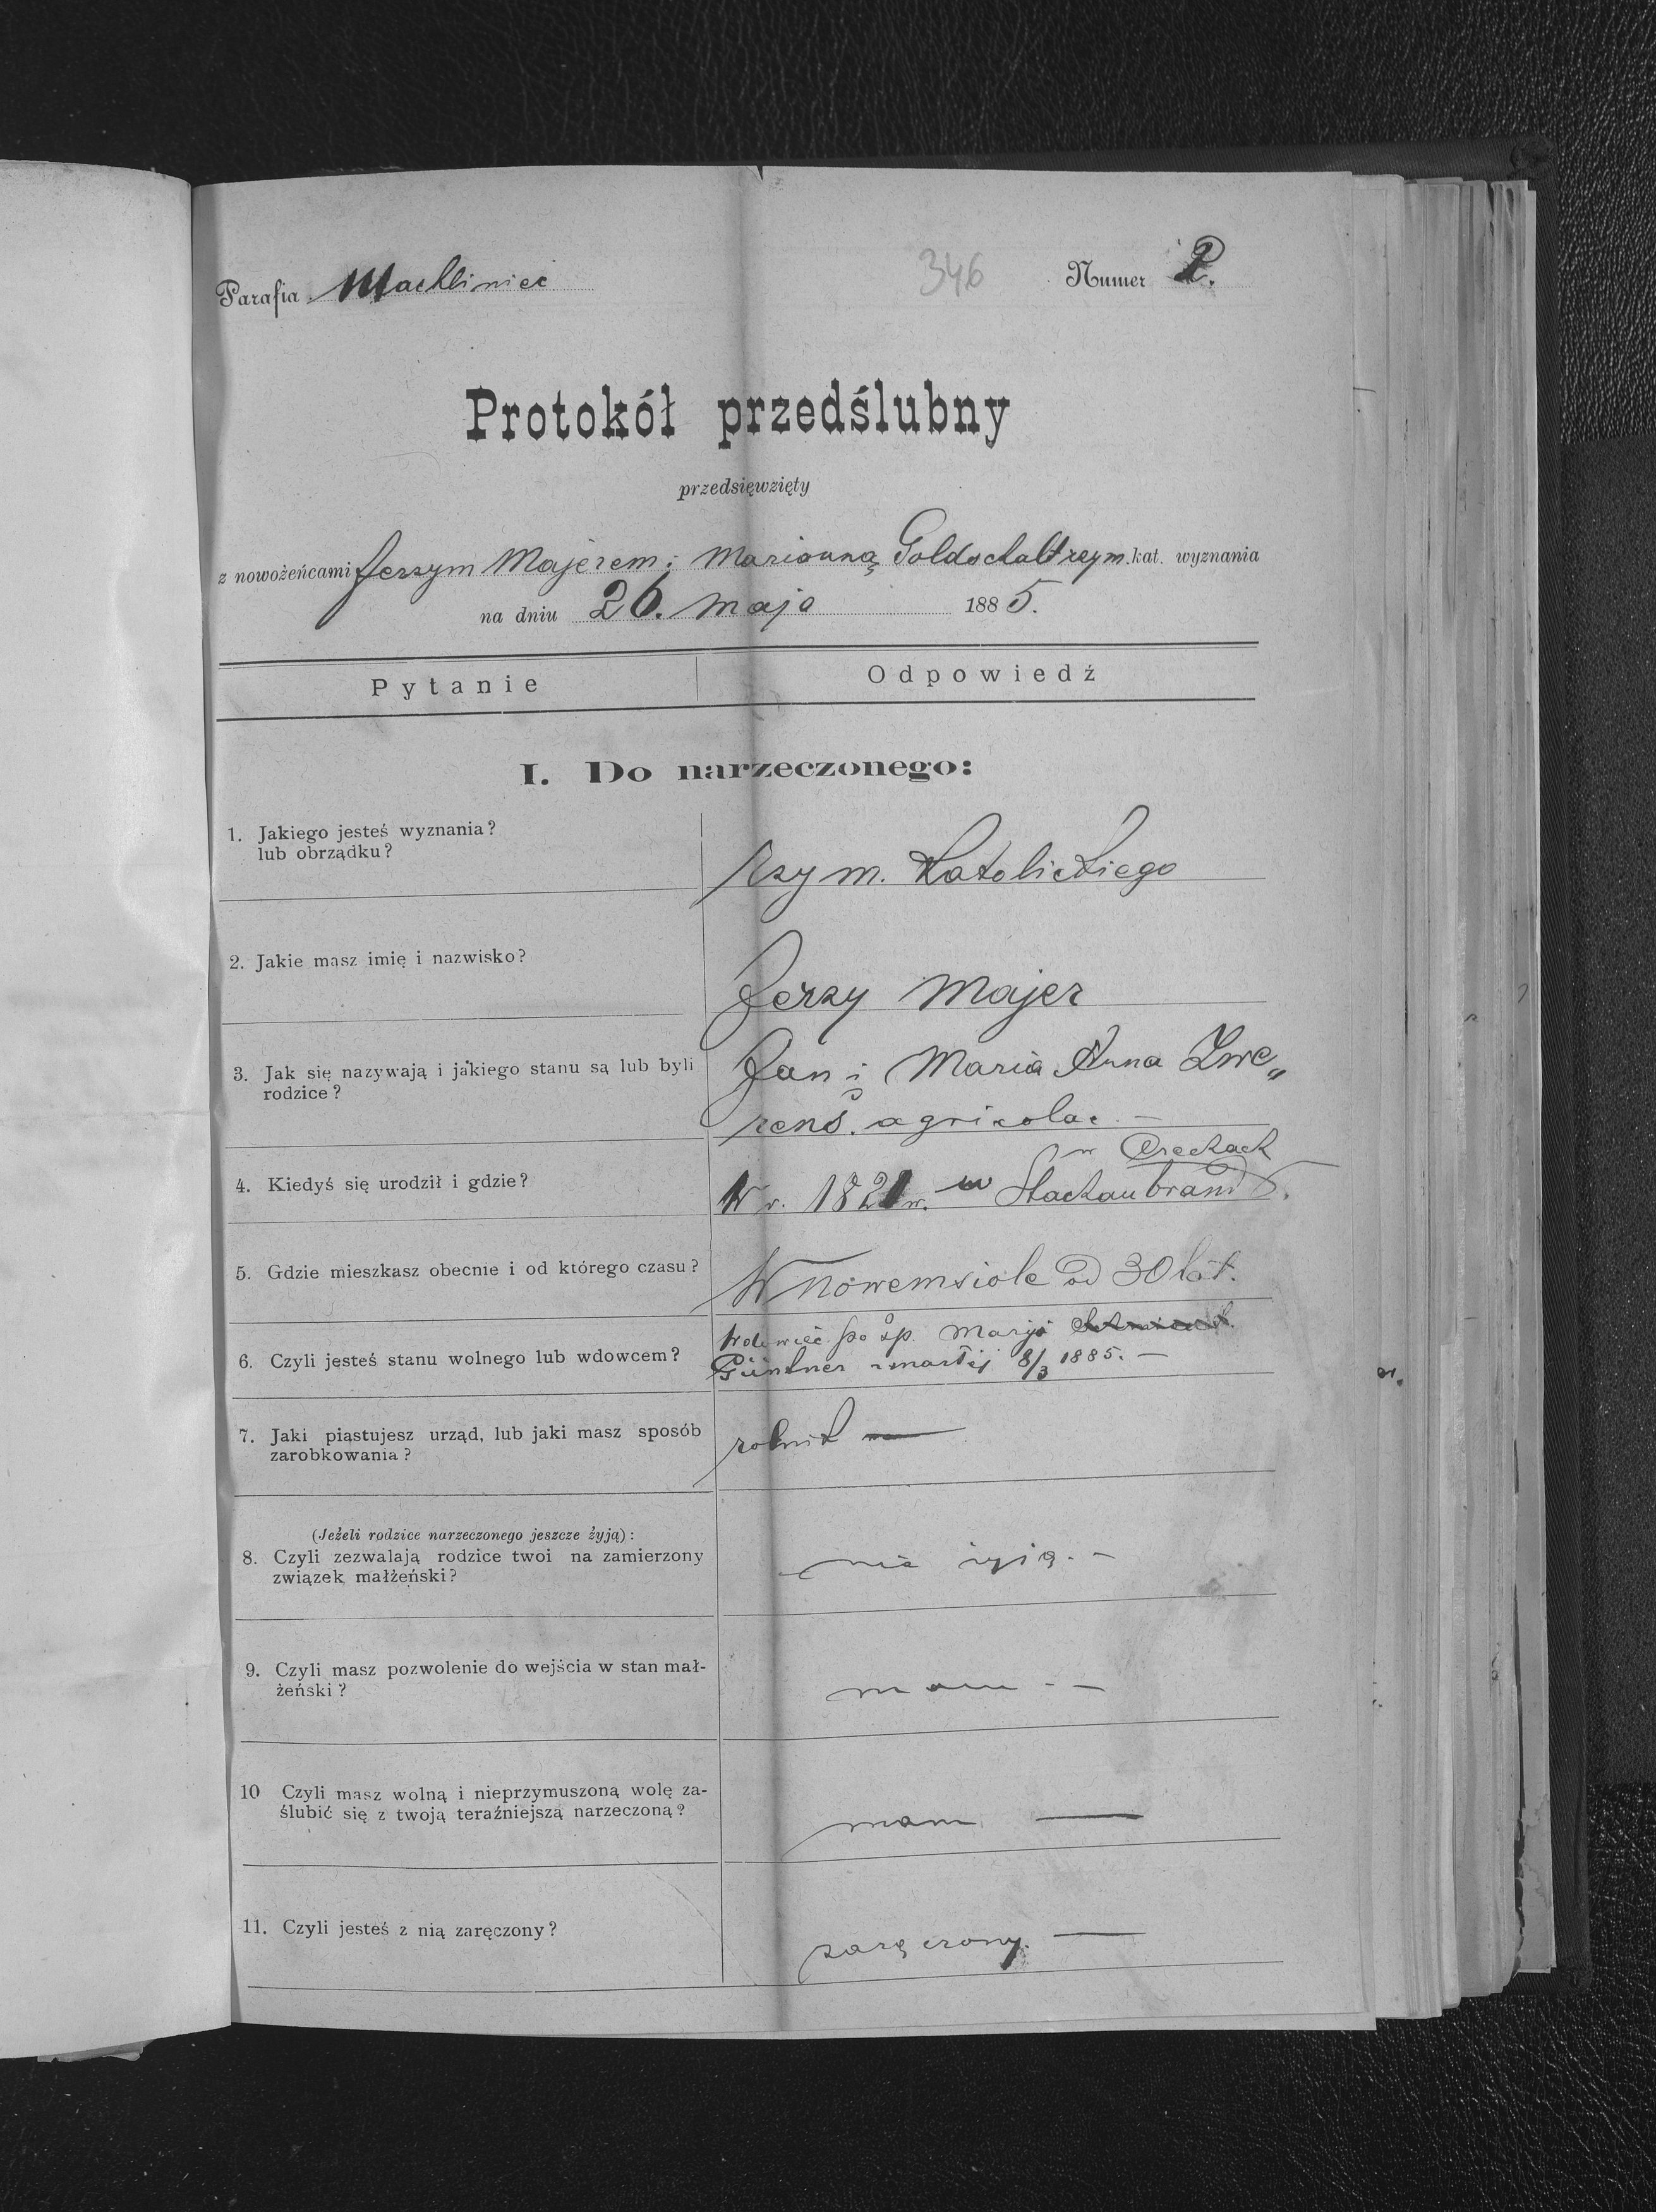 Parafia Machliniec 346 Numer 2.
Protokół przedślubny
przedsięwzięty
z nowożeńcami Jerzym Majerem i Marianną Goldschalt rzym. kat. wyznania
na dniu 26. maja 1885.
Pytanie Odpowiedź
I. Do narzeczonego:
1. Jakiego jesteś wyznania?
lub obrządku?
rzym. katolickiego
2. Jakie masz imię i nazwisko?
Jerzy Majer
3. Jak się nazywają i jakiego stanu są lub byli
rodzice?
Jan i Maria Anna Zwe„
rens. agricolae. —
4. Kiedyś się urodził i gdzie?
w Czechach
W r. 1821 w Stachaubrand
5. Gdzie mieszkasz obecnie i od którego czasu?
W nowemsiole od 30 lat.
6. Czyli jesteś stanu wolnego lub wdowcem?
Wdowiec po śp. Maryi
Güntner zmarłej 8/3 1885. —
7. Jaki piastujesz urząd, lub jaki masz sposób
zarobkowania?
rolnik —
(Jeżeli rodzice narzeczonego jeszcze żyją):
8. Czyli zezwalają rodzice twoi na zamierzony
związek małżeński?
nie żyją. —
9. Czyli masz pozwolenie do wejścia w stan mał-
żeński?
mam. —
10 Czyli masz wolną i nieprzymuszoną wolę za-
ślubić się z twoją teraźniejszą narzeczoną?
mam —
11. Czyli jesteś z nią zaręczony?
zaręczony. —